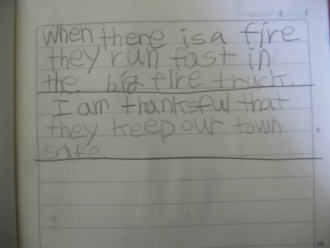 When there is a fire
they run fast in
the big fire truck.
I am thanksful that
they keep our town
safe